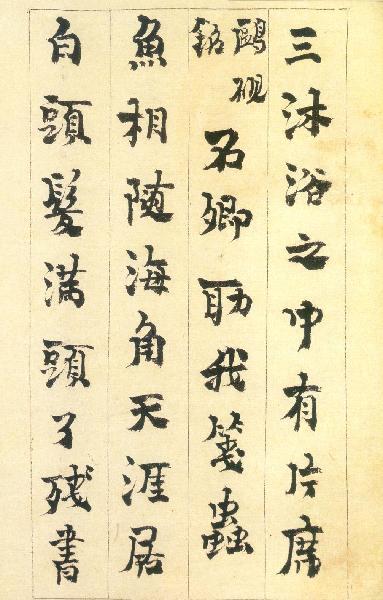 三沐浴之中有片席
鷗硯銘 石卿助我箋蟲
魚相随海角天涯居
白頭髮滿頭了残書